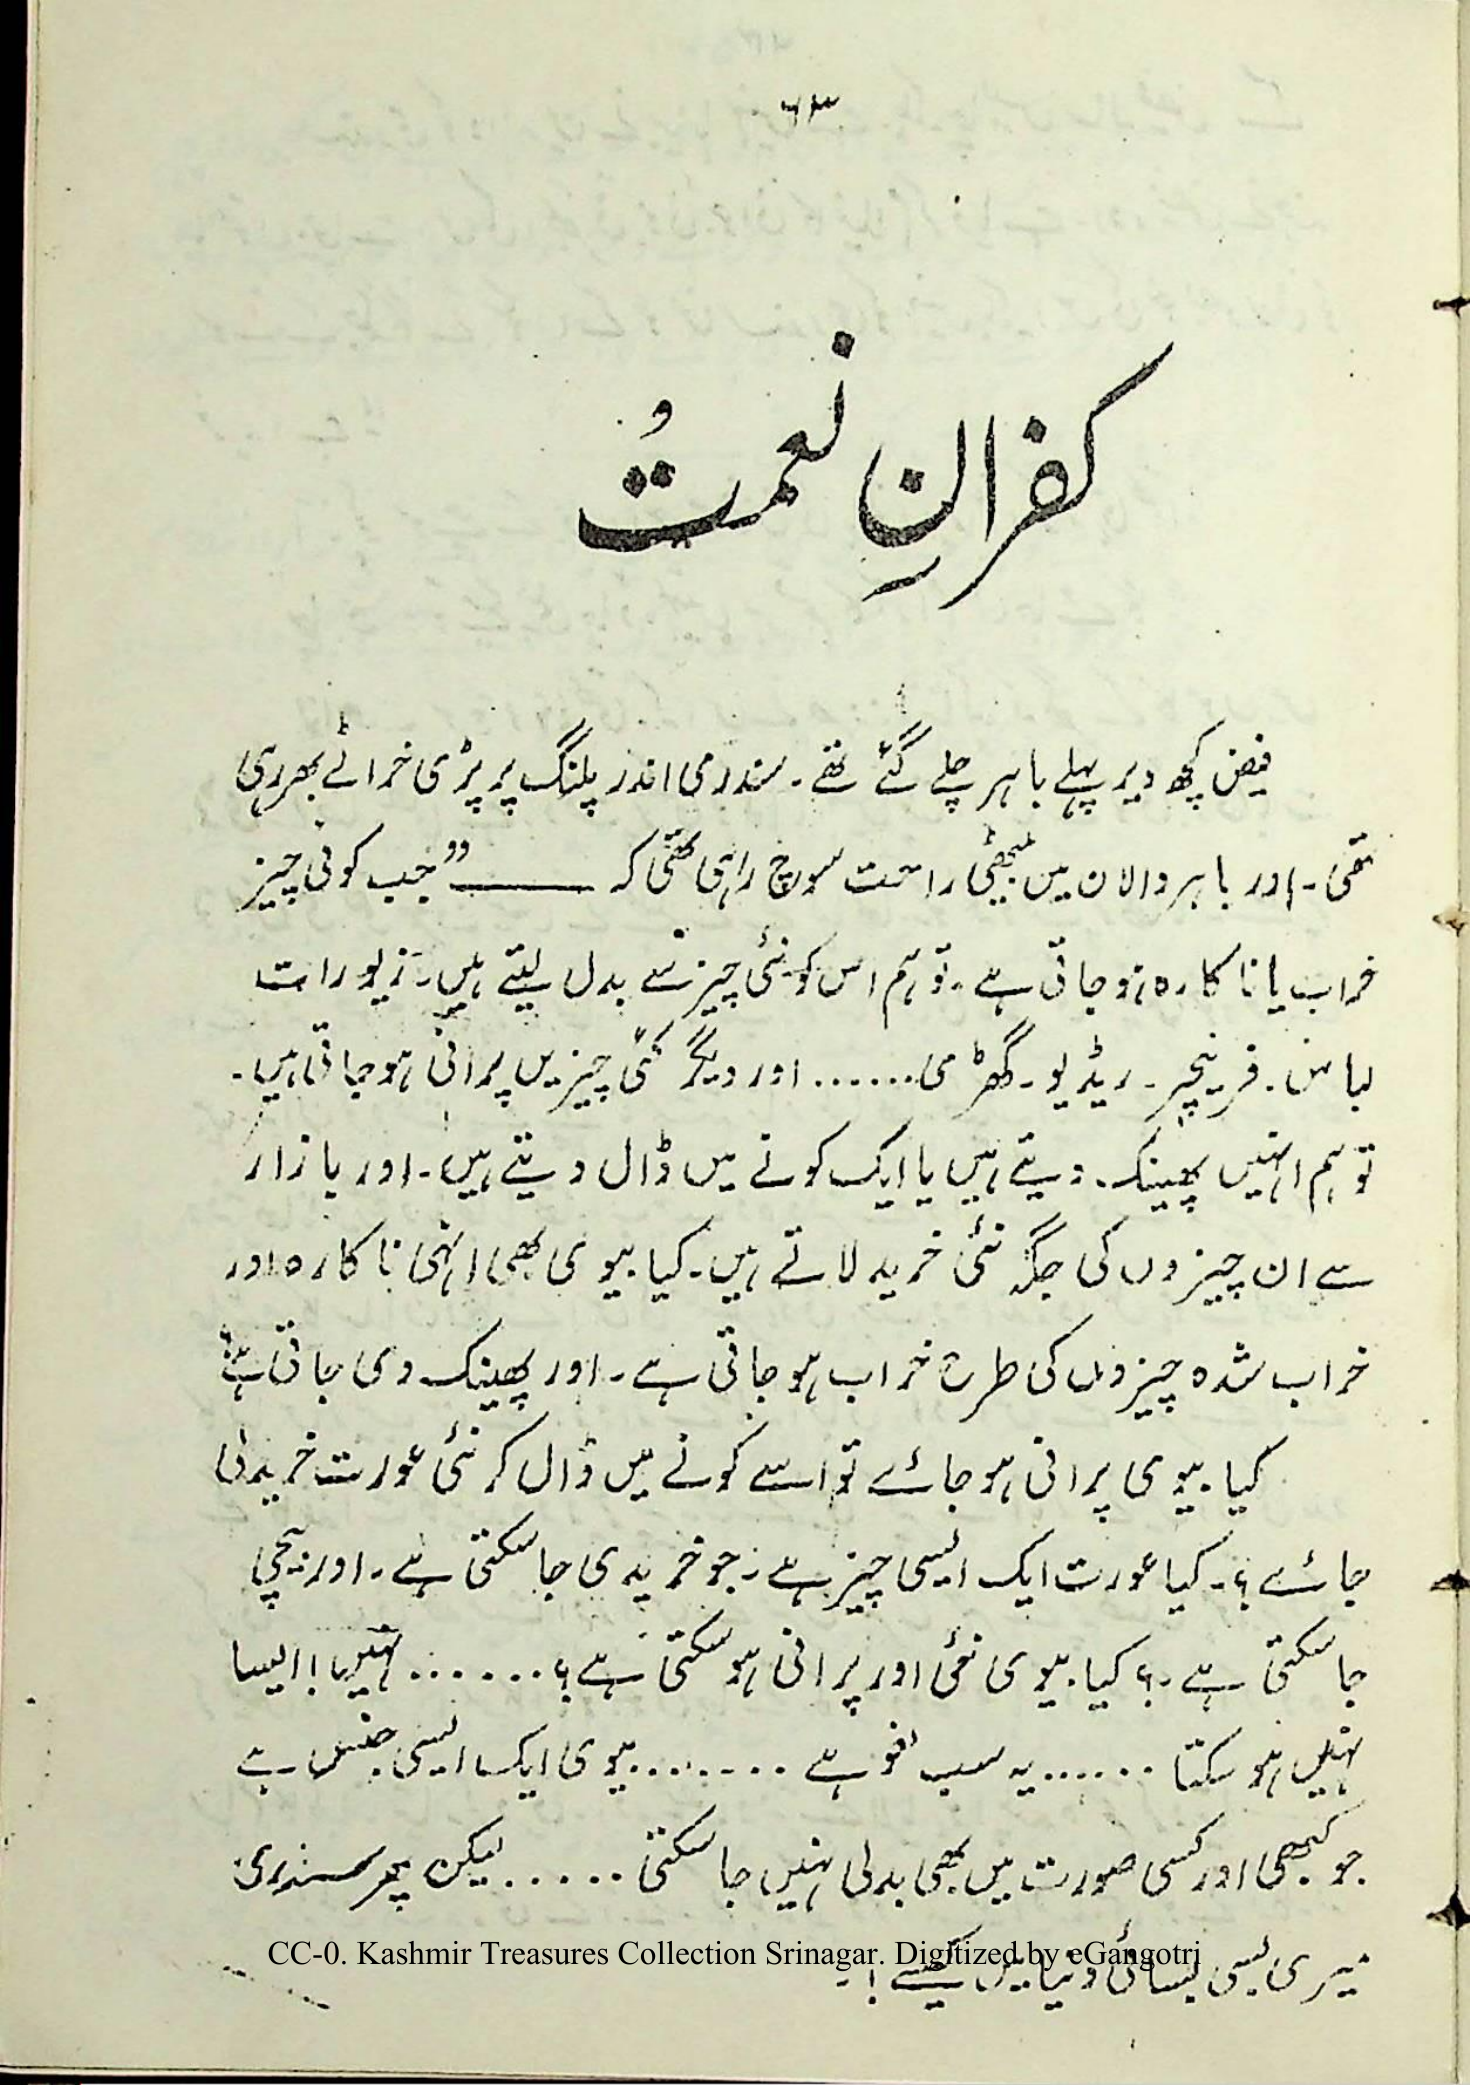 ۶۳
کفرانِ نعمتُ
فیض کچھ دیر پہلے باہر چلے گئے تھے۔ سندری اندر پلنگ پر پڑی خراٹے بھر رہی
تھی۔ اور باہر دالان میں بیٹھی راحت سوچ رہی تھی کہ ـــــــ ”جب کوئی چیز
خراب یا ناکارہ ہو جاتی ہے۔ تو ہم اس کو نئی چیز سے بدل لیتے ہیں۔ زیورات
لباس۔ فرنیچر۔ ریڈیو۔ گھڑی...... اور دیگر کئی چیزیں پرانی ہو جاتی ہیں۔
تو ہم انہیں پھینک دیتے ہیں یا ایک کونے میں ڈال دیتے ہیں۔ اور بازار
سے ان چیزوں کی جگہ نئی خرید لاتے ہیں۔ کیا بیوی بھی انہی ناکارہ اور
خراب شدہ چیزوں کی طرح خراب ہو جاتی ہے۔ اور پھینک دی جاتی ہے؟
کیا بیوی پرانی ہو جائے تو اسے کونے میں ڈال کر نئی عورت خریدلی
جائے؟۔ کیا عورت ایک ایسی چیز ہے۔ جو خریدی جا سکتی ہے۔ اور بیچی
جا سکتی ہے۔؟ کیا بیوی نئی اور پرانی ہو سکتی ہے؟...... نہیں! ایسا
نہیں ہو سکتا ...... یہ سب لغو ہے ........ بیوی ایک ایسی جنس ہے
جو کبھی اور کسی صورت میں بھی بدلی نہیں جا سکتی ..... لیکن پھر سندری
میری بسی بسائی دنیا میں کیسے!۔
CC-0. Kashmir Treasures Collection Srinagar. Digitized by eGangotri